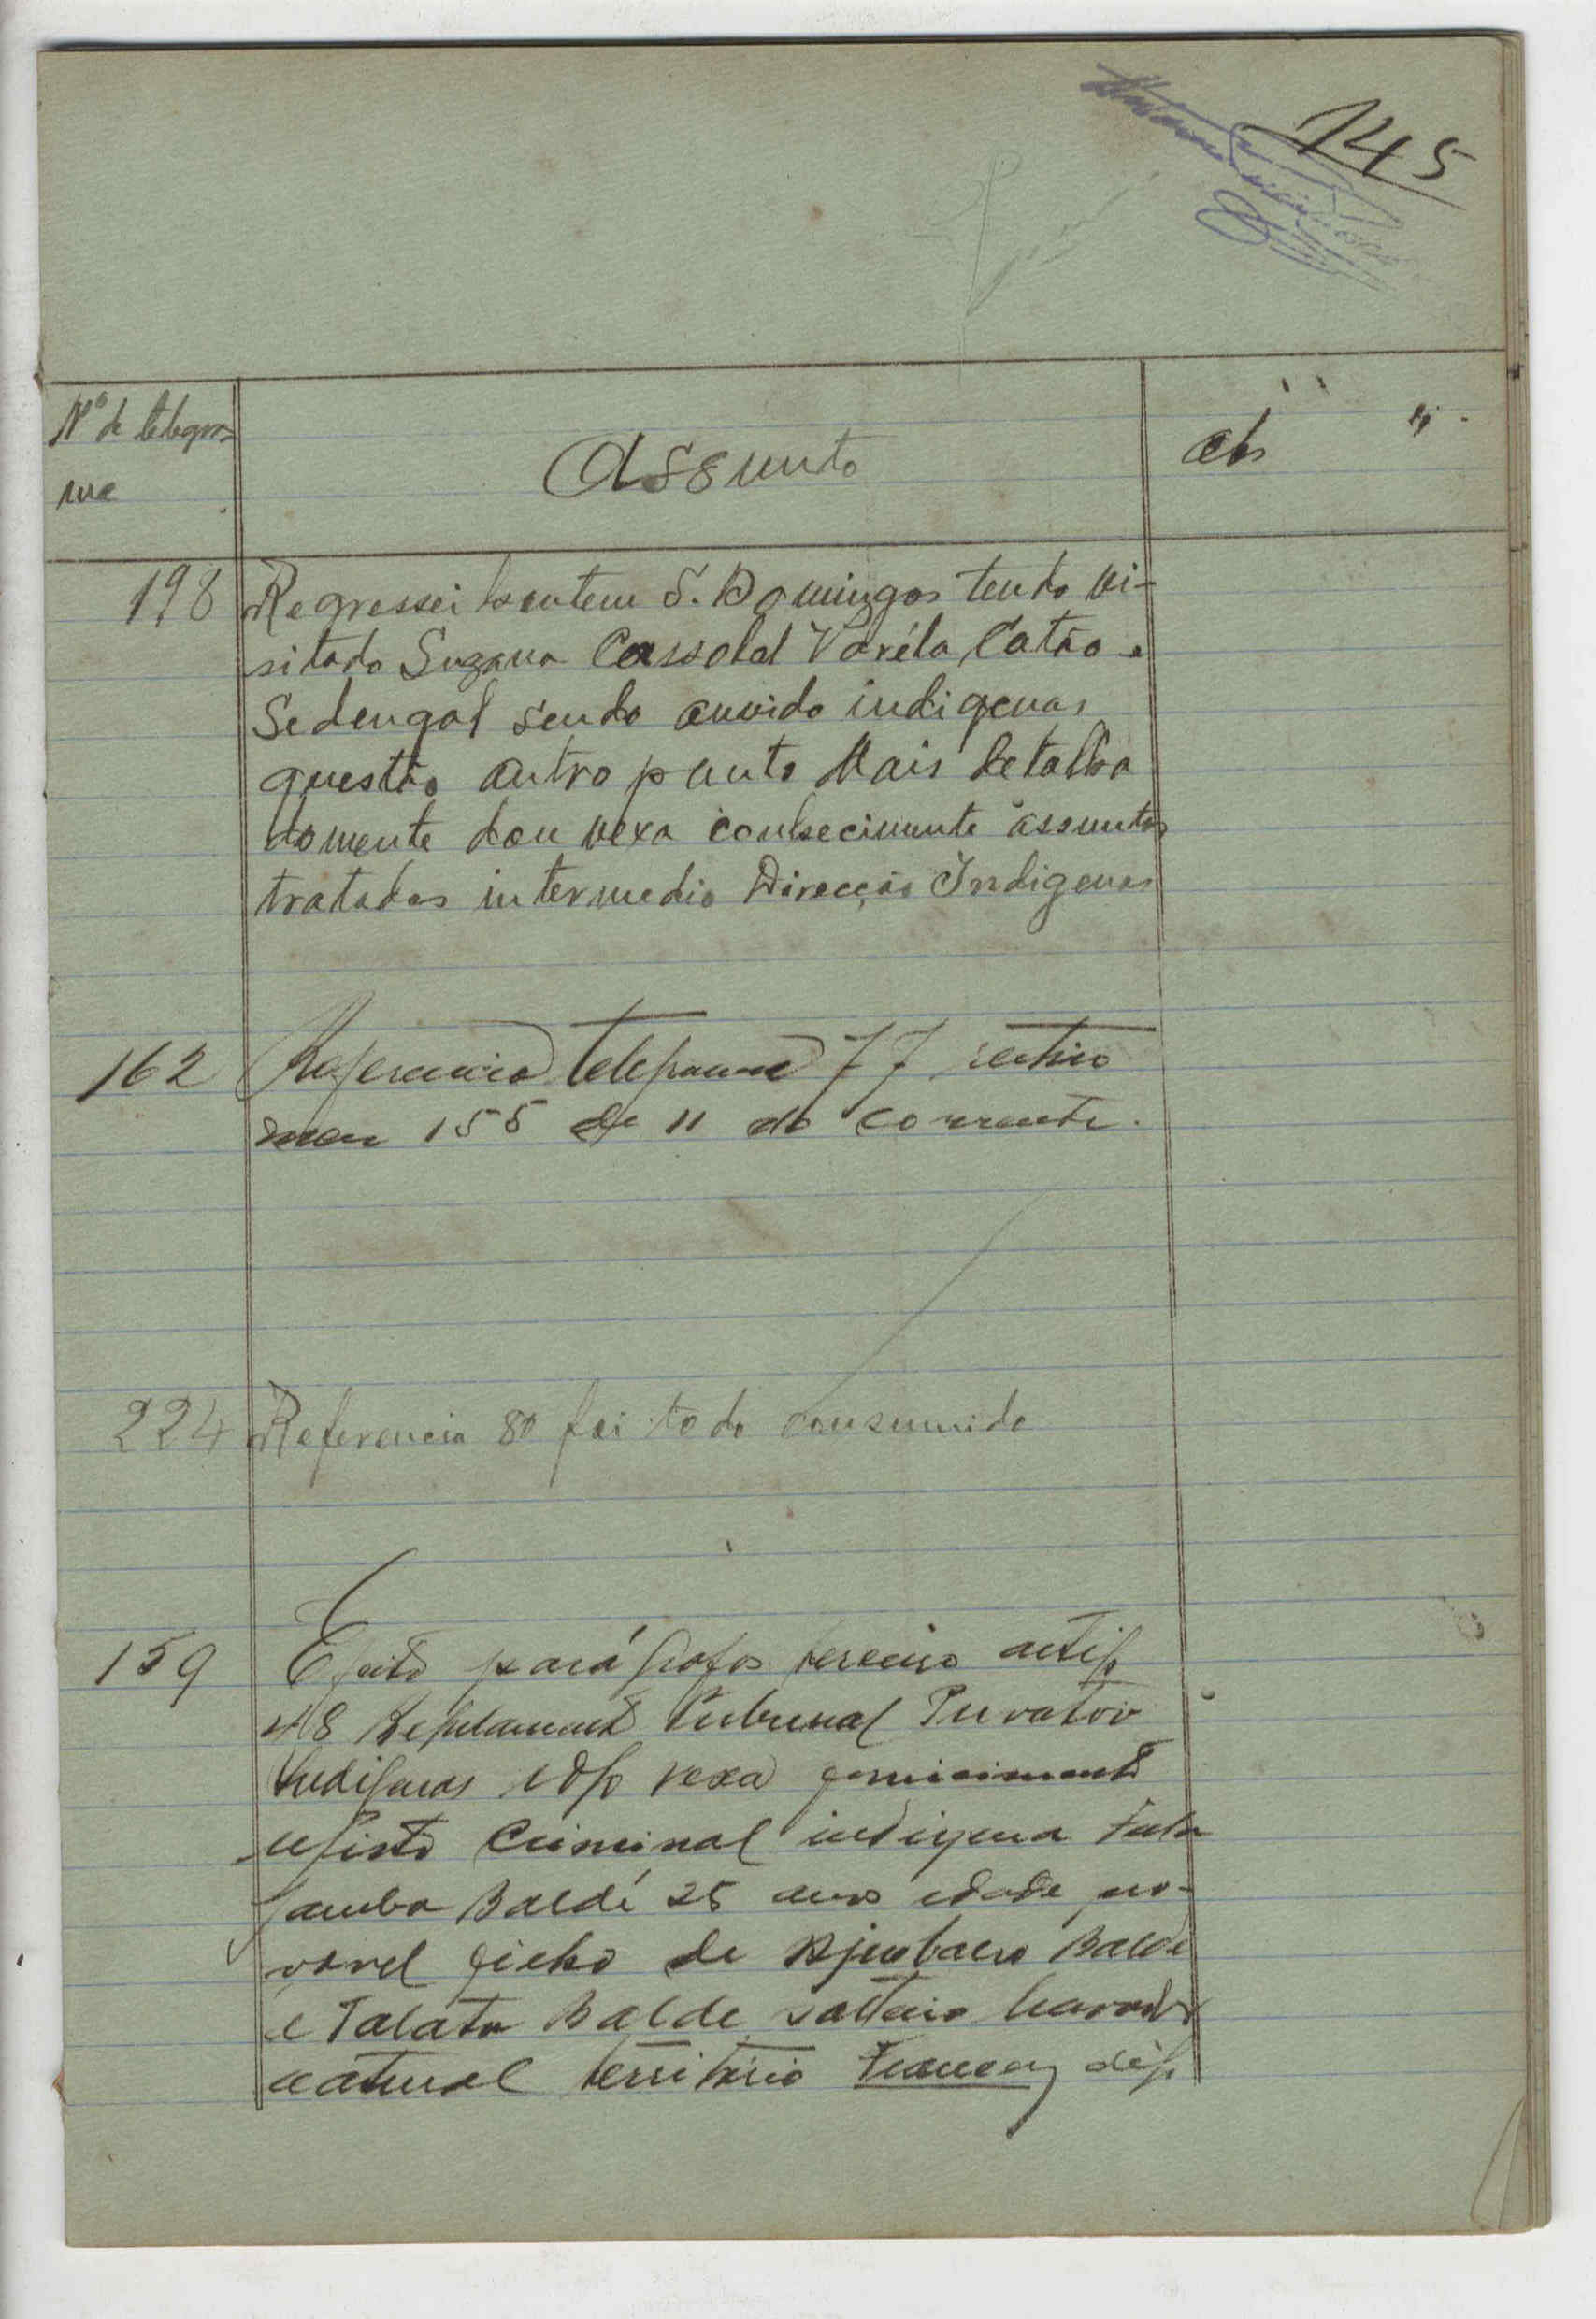 145
Nº de telegra
ma
Assunto
Obs
198 Regressei hontem S. Domingos tendo vi-
sitado Suzana Cassolol Varéla Catão e
Sedengal sendo ouvido indigenas
questão outro ponto Mais detalha
damente dou vexa conhecimento assuntos
tratados intermedio Direcção Indigenas
162 Referencia telegrama 77 rectifico
meu 155 de 11 do corrente.
224 Referencia 80 foi todo consumido
159 Efeito parágrafos terceiro artigo
48 Regulamento Tribunal Privativo
Indigenas rogo vexa fornecimento
registo Criminal indigena Fula
Samba Baldé 25 anos idade pro-
vavel filho de Balde
e Talata Balde solteiro lavrador
natural território Francez